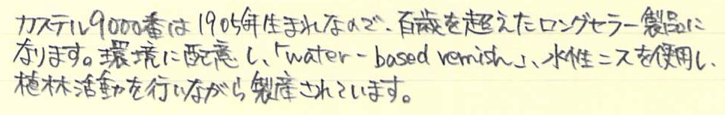 カステル9000番は1905年生まれなので、百歳を超えたロングセラー製品に
なります。環境に配慮し、「water-based vernish」、水性ニスを使用し、
植林活動を行いながら製産されています。